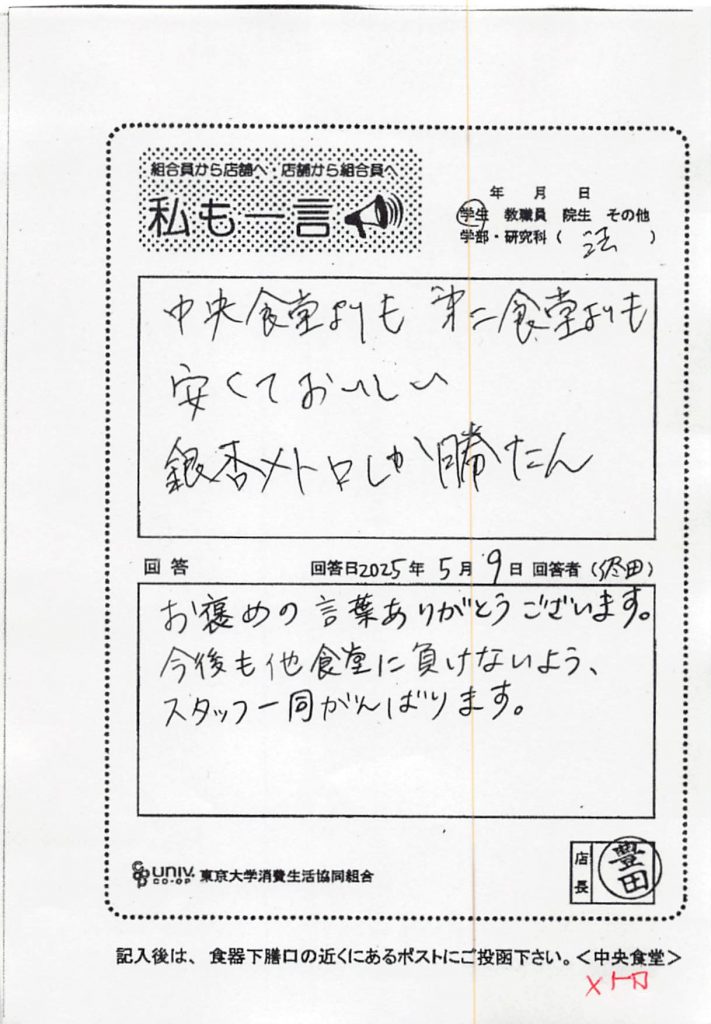 組合員から店舗へ・店舗から組合員へ
私も一言
年 月 日
学生 教職員 院生 その他
学部・研究科（ 法 ）
中央食堂よりも 第二食堂よりも
安くておいしい
銀杏メトロしか勝たん
回答 回答日2025年5月9日 回答者（ 田）
お褒めの言葉ありがとうございます。
今後も他食堂に負けないよう、
スタッフ一同がんばります。
UNIV. CO-OP 東京大学消費生活協同組合
店長 豊田
記入後は、食器下膳口の近くにあるポストにご投函下さい。＜中央食堂＞
メトロ